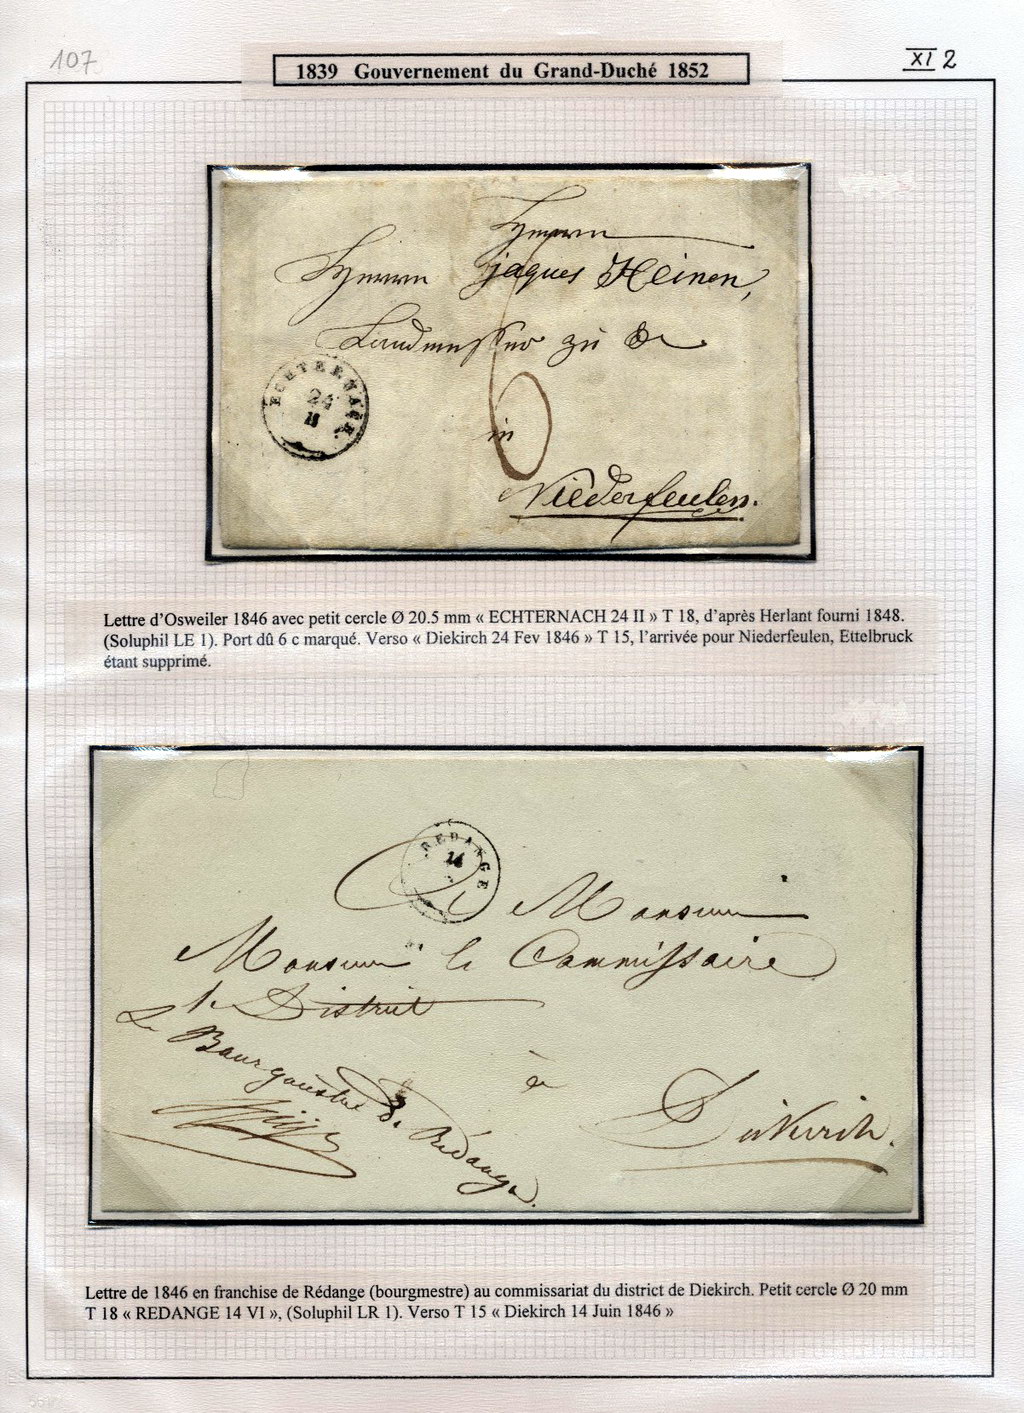 107
XI 2
1839 Gouvernement du Grand-Duché 1852
Herrn
Herrn Jaques Heinen,
Landmesser zu
ECHTERNACH.
24
II
6
in
Niederfeulen.
Lettre d'Osweiler 1846 avec petit cercle Ø 20.5 mm « ECHTERNACH 24 II » T 18, d'après Herlant fourni 1848.
(Soluphil LE 1). Port dû 6 c marqué. Verso « Diekirch 24 Fev 1846 » T 15, l'arrivée pour Niederfeulen, Ettelbruck
étant supprimé.
REDANGE
14
A Monsieur
Monsieur le Commissaire
District
Le Bourgmestre de Rédange.
à
Diekirch.
Lettre de 1846 en franchise de Rédange (bourgmestre) au commissariat du district de Diekirch. Petit cercle Ø 20 mm
T 18 « REDANGE 14 VI », (Soluphil LR 1). Verso T 15 « Diekirch 14 Juin 1846 »